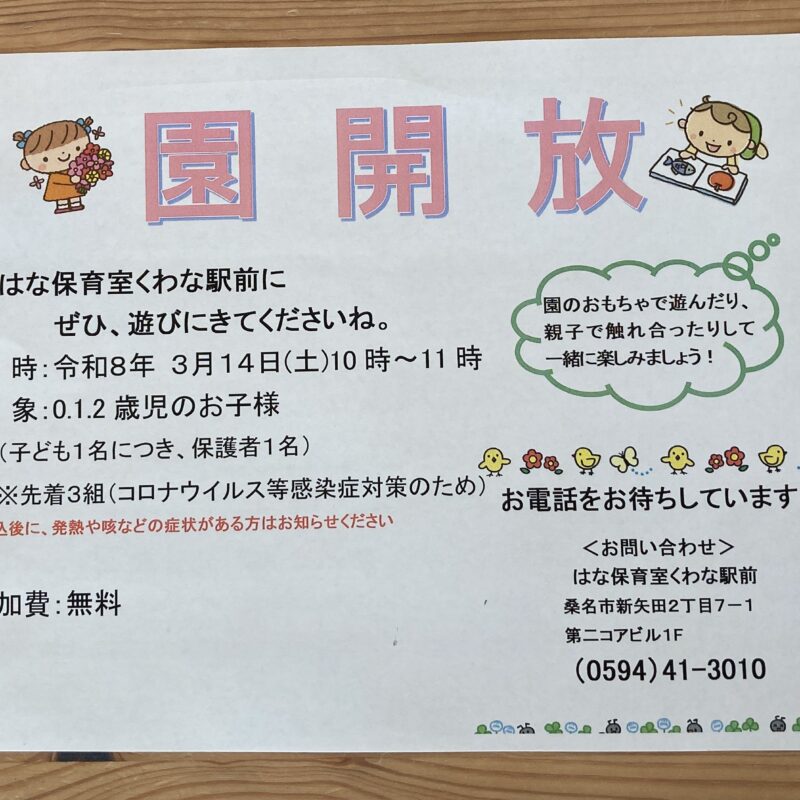 園開放
はな保育室くわな駅前に
ぜひ、遊びにきてくださいね。
時：令和８年 ３月１４日(土)10時～11時
象：0.1.2歳児のお子様
(子ども１名につき、保護者１名)
※先着３組(コロナウイルス等感染症対策のため)
込後に、発熱や咳などの症状がある方はお知らせください
加費：無料
園のおもちゃで遊んだり、
親子で触れ合ったりして
一緒に楽しみましょう！
お電話をお待ちしています
＜お問い合わせ＞
はな保育室くわな駅前
桑名市新矢田２丁目７－１
第二コアビル１F
(0594)41-3010